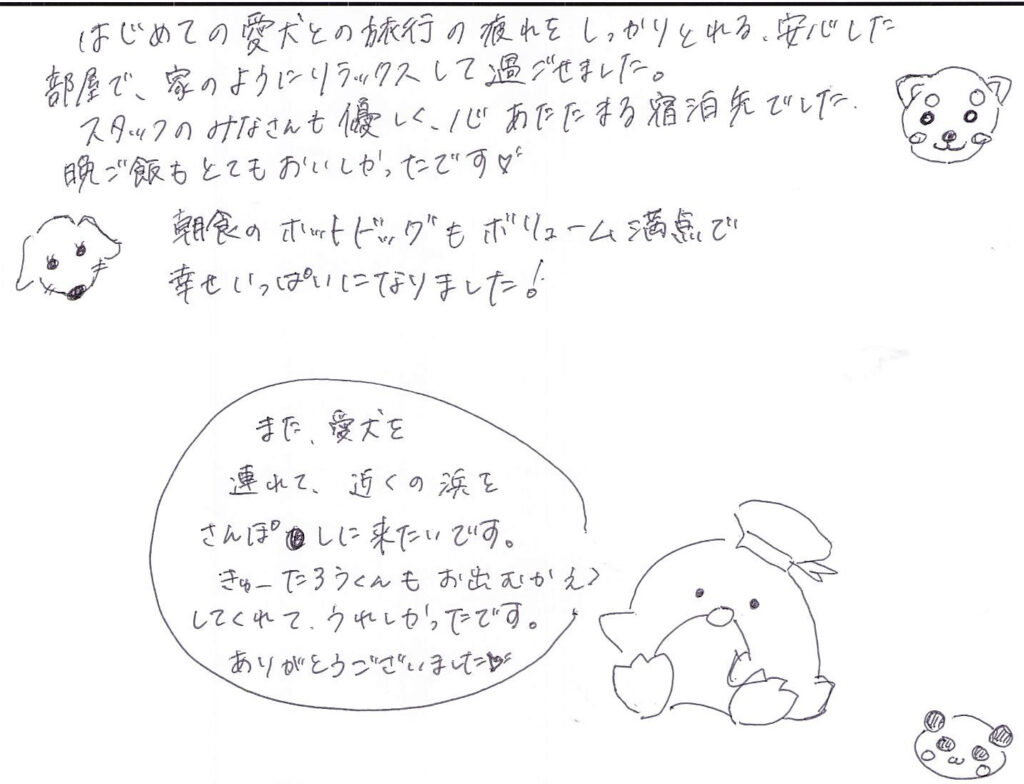 はじめての愛犬との旅行の疲れをしっかりとれる、安心した
部屋で、家のようにリラックスして過ごせました。
スタッフのみなさんも優しく、心あたたまる宿泊先でした。
晩ご飯もとてもおいしかったです♡
朝食のホットドッグもボリューム満点で
幸せいっぱいになりました!
また、愛犬を
連れて、近くの浜を
さんぽしに来たいです。
きゅーたろうくんもお出むかえ
してくれて、うれしかったです。
ありがとうございました♡